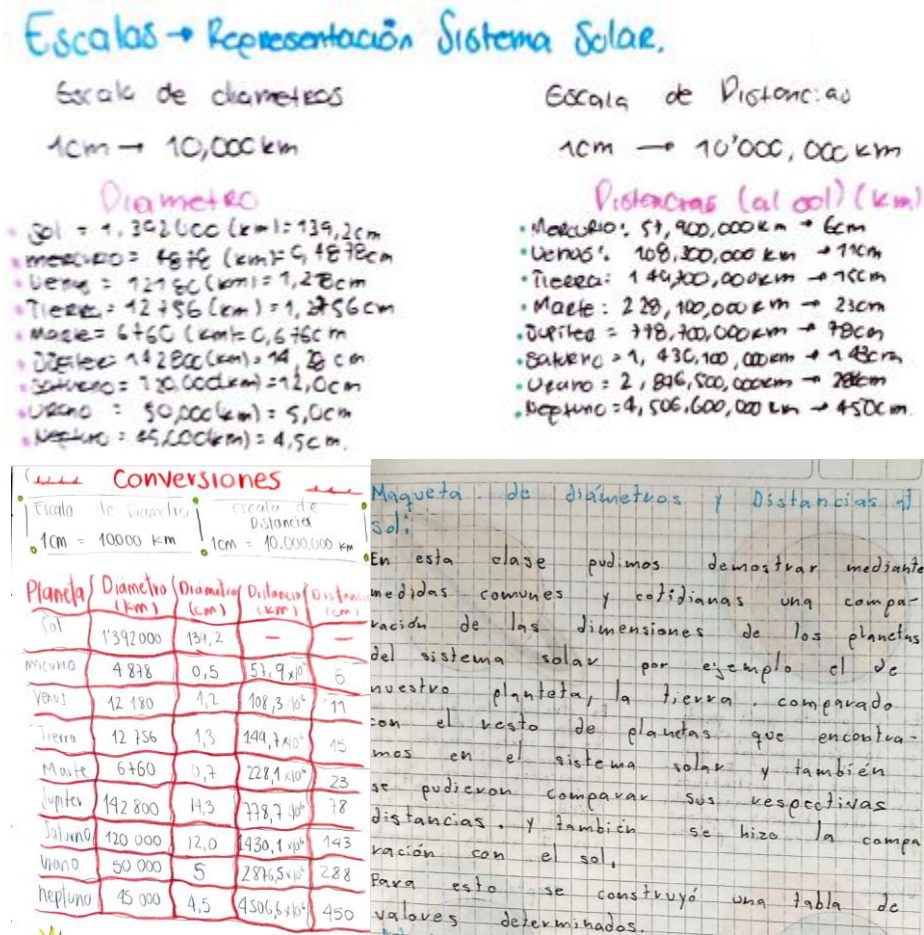 Escalas → Representación Sistema Solar.
Escala de diametros
1cm → 10,000 km
Diametro
Sol = 1,392000 (km)= 139,2cm
mercurio = 4878 (km)= 0,4878cm
Venus = 12180 (km)= 1,28cm
Tierra = 12756 (km) = 1,2756cm
Marte = 6760 (km)= 0,676cm
Júpiter: 142800 (km) = 14,28 cm
Saturno = 120,000(km)=12,0cm
Urano : 50,000(km) = 5,0cm
Neptuno : 45,000(km) = 4,5cm.
Escala de Distancias
1cm → 10'000,000 km
Distancias (al sol) (km)
Mercurio: 57,900,000km → 6cm
Venus: 108,300,000 km → 11cm
Tierra: 149,700,000km → 15cm
Marte: 228,100,000km → 23cm
Jupiter = 778,700,000km → 78cm
Saturno = 1,430,100,000km → 143cm
Urano = 2,876,500,000km → 288cm
Neptuno = 4,506,600,000 km → 450cm.
Conversiones
Escala de Diametro
1cm = 10000 km
Escala de
Distancias
1cm = 10.000,000 km
Planeta Diámetro (km) Diámetro (cm) Distancia (km) Distancia (cm)
Sol 1'392000 139,2 — —
mercurio 4 878 0,5 57,9x10⁶ 6
Venus 12 180 1,2 108,3x10⁶ 11
Tierra 12 756 1,3 149,7x10⁶ 15
Marte 6760 0,7 228,1x10⁶ 23
Jupiter 142 800 14,3 778,7x10⁶ 78
Saturno 120 000 12,0 1430,1x10⁶ 143
Urano 50 000 5 2876,5x10⁶ 288
neptuno 45 000 4,5 4506,6x10⁶ 450
Maqueta de diámetros y Distancias al
sol:
En esta clase pudimos demostrar mediante
medidas comunes y cotidianas una compa-
ración de las dimensiones de los planetas
del sistema solar por ejemplo el de
nuestro planteta, la tierra. comparado
con el resto de planetas que encontra-
mos en el sistema solar y también
se pudieron comparar sus respectivas
distancias. y también se hizo la compa
ración con el sol.
Para esto se construyó una tabla de
valores determinados.